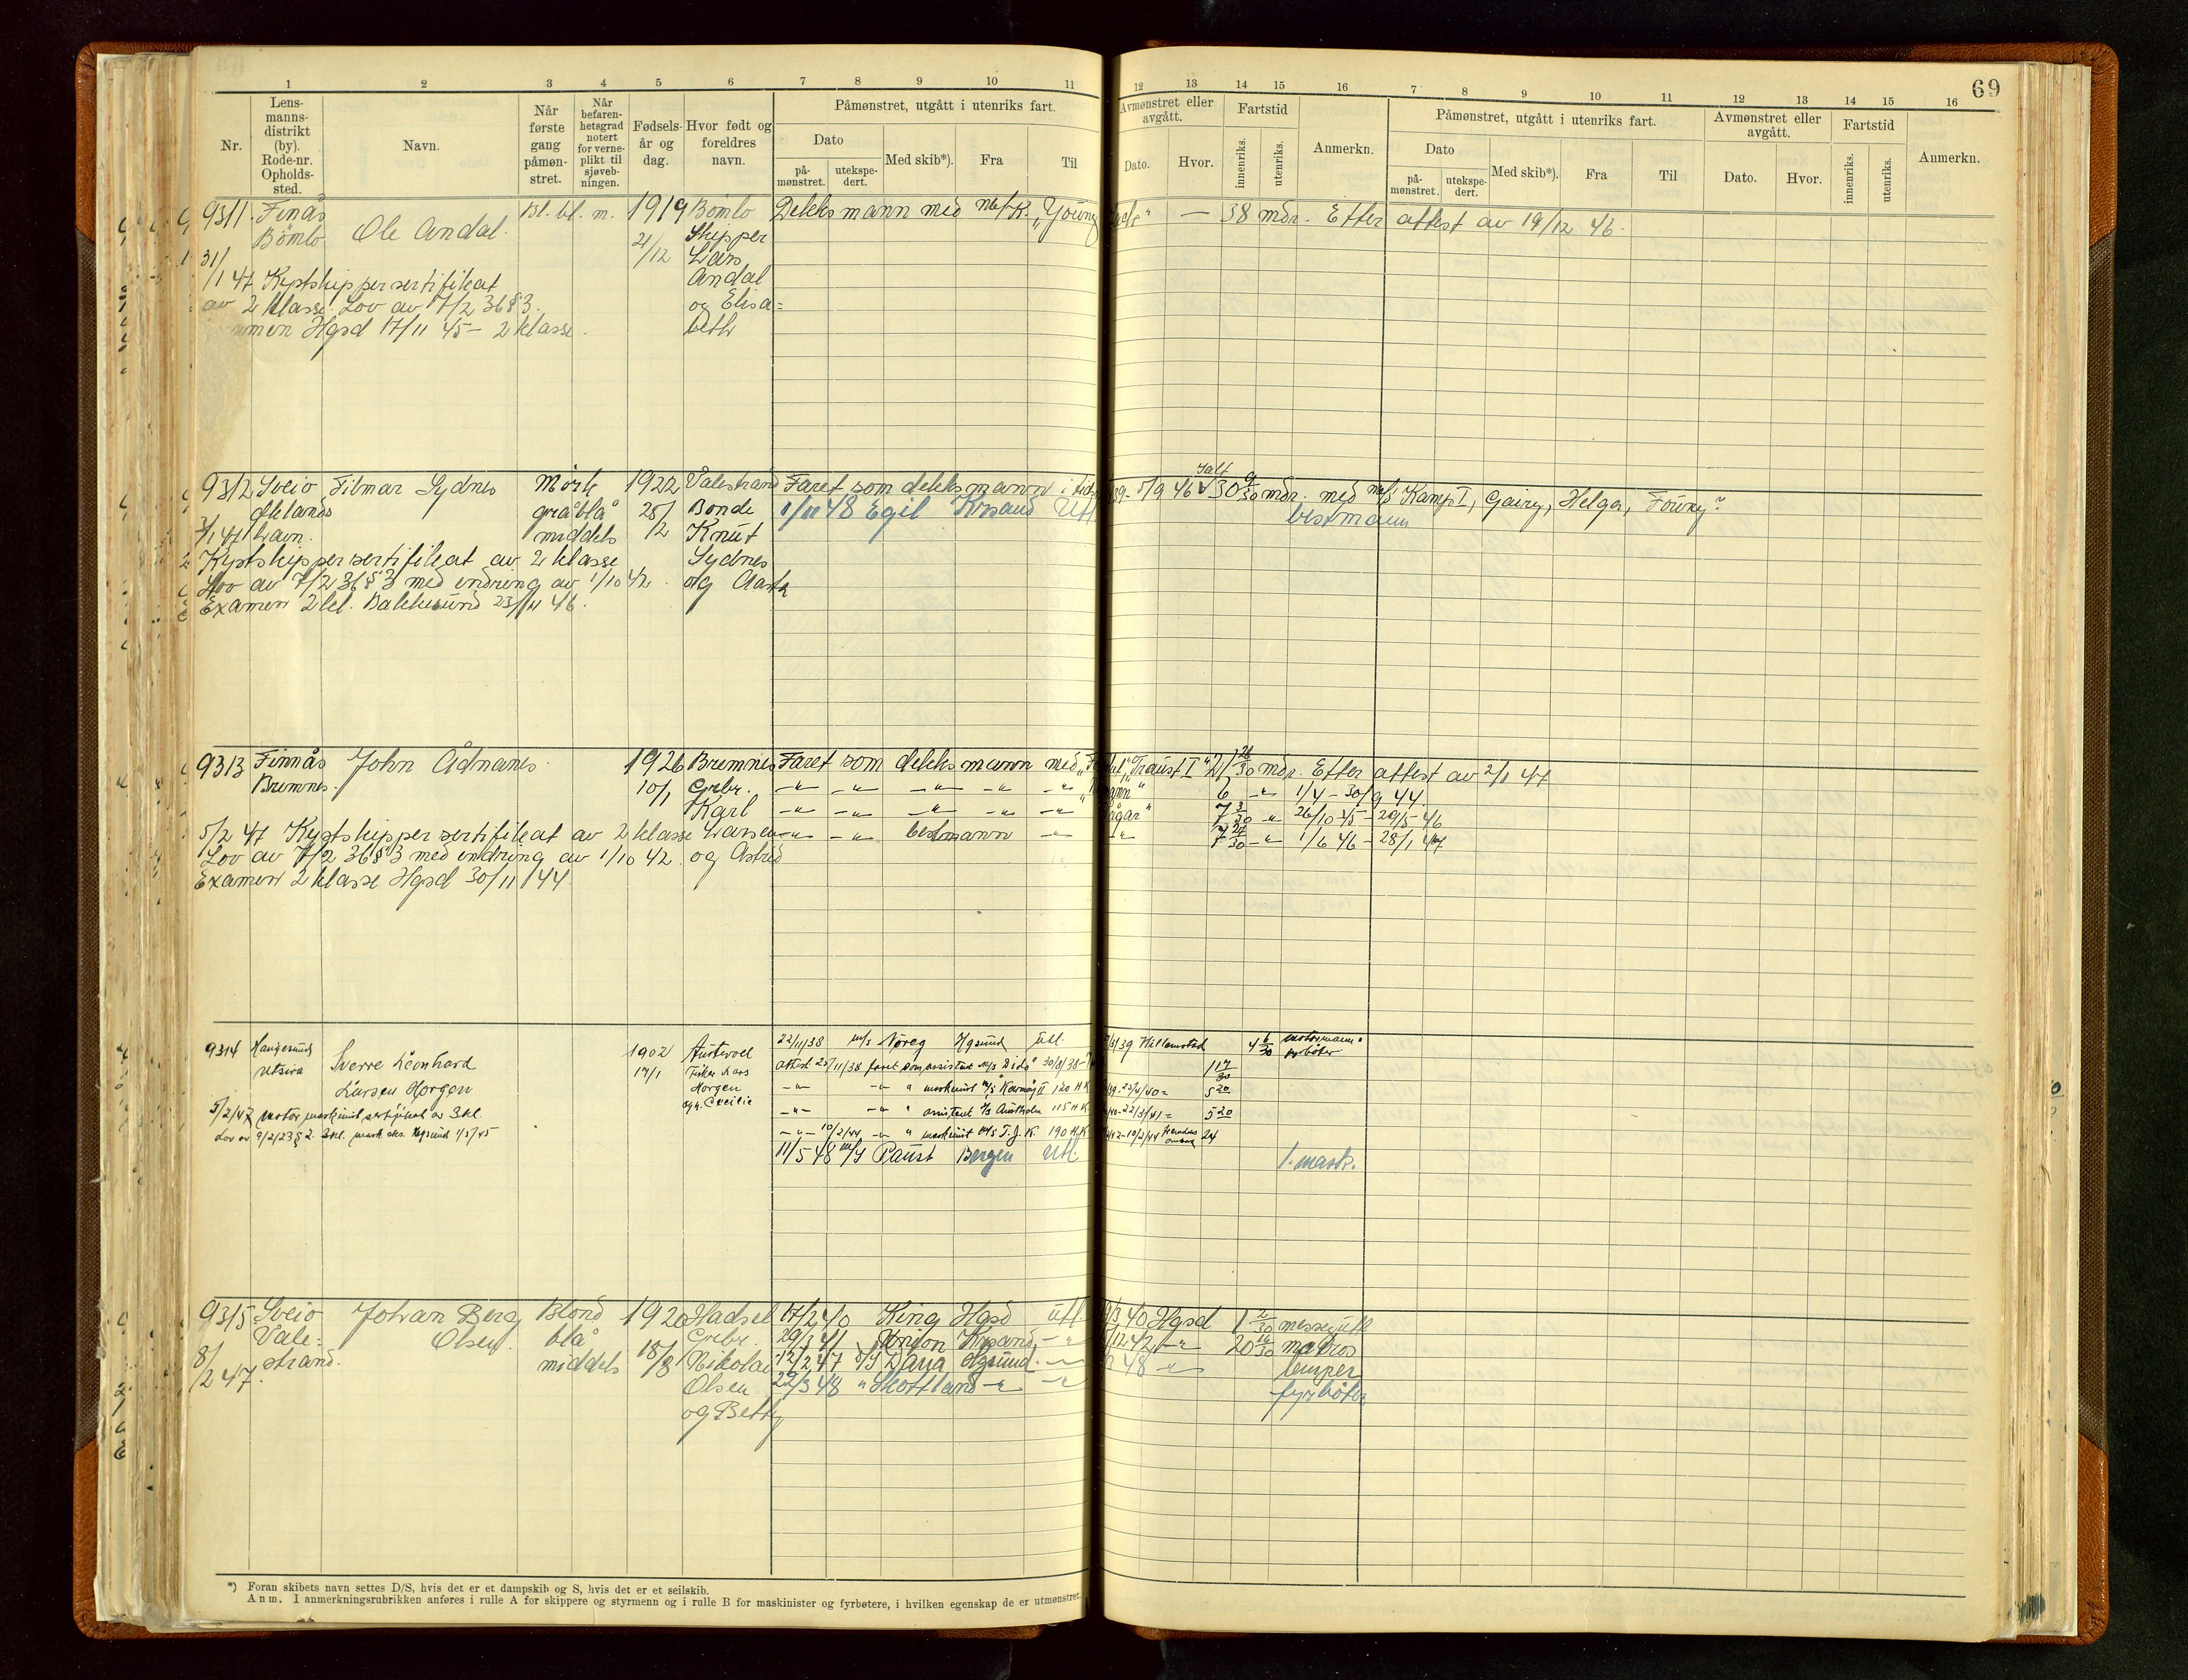 69
1 2 3 4 5 6 7 8 9 10 11 12 13 14 15 16 7 8 9 10 11 12 13 14 15 16
Nr.
Lens-
manns-
distrikt
(by).
Rode-nr.
Opholds-
sted.
Navn.
Når
første
gang
påmøn-
stret.
Når
befaren-
hetsgrad
notert
for verne-
plikt til
sjøveb-
ningen.
Fødsels-
år og
dag.
Hvor født og
foreldres
navn.
Påmønstret, utgått i utenriks fart.
Dato
på-
mønstret.
utekspe-
dert.
Med skib*).
Fra
Til
Avmønstret eller
avgått.
Dato.
Hvor.
Fartstid
innenriks.
utenriks.
Anmerkn.
Påmønstret, utgått i utenriks fart.
Dato
på-
mønstret.
utekspe-
dert.
Med skib*).
Fra
Til
Avmønstret eller
avgått.
Dato.
Hvor.
Fartstid
innenriks.
utenriks.
Anmerkn.
9311 Finås Ole Andal. Bl. bl. m. 1919 Bømlo Dekksmann med M/K. "Young — 38 mdr. Efter attest av 19/12 46.
Bømlo 21/12 Skipper
31/1 47 Kystskippersertifikat Lars
av 2 klasse. Lov av 7/2 36 § 3. Andal
Hgsd 17/11 45 – 2 klasse. og Elisa=
beth
9312 Sveio Filmar Sydnes Mørk 1922 Valestrand Faret som dekksmann i 5/9 46 30 9/30 mdr. med M/S Kamp I, Gairy, Helga,
gråblå 28/2 Bonde 1/11 48 Egil Krsand Utl. bestmann
3/1 47 middels Knut
Kystskippersertifikat av 2 klasse Sydnes
Lov av 7/2 36 § 3 med endring av 1/10 42. og Aasta
Examen 2 kl. Bakkesund 23/11 46.
9313 Finnås John Ådnanes. 1926 Bremnes Faret som dekksmann med "Traust I" 21 28/30 mdr. Efter attest av 2/1 47
Bremnes. 10/1 Grbr. —"— —"— —"— —"— —"— 6 —"— 1/4 – 30/9 44.
Karl —"— —"— —"— —"— —"— 7 3/30 —"— 26/10 45 – 29/5 46
5/2 47 Kystskippersertifikat av 2 klasse Larsen —"— —"— bestmann —"— —"— 7 27/30 —"— 1/6 46 – 28/1 47
Lov av 7/2 36 § 3 med endring av 1/10 42. og Astrid
Examen 2 klasse Hgsd 30/11 44
9314 Haugesund Sverre Leonhard 1902 Austevoll 22/11/38 m/s Noreg Hgsund Utl. 39 Willemstad 4 6/30 motormann
Utsira Larsen Horgen 17/1 Fisker Lars attest 25/11/38 faret som assistent m/s Dido 30/8/38 1 17/30 fyrbøter
Horgen —"— —"— " maskinist m/s Karmøy II 120 H.K. 39-23/4/40= 5 20
5/2/47 Motormaskinistsertifikat av 3 kl. og h. Cecilie —"— —"— " assistent 115 H.K. 40-22/3/41= 5 20
Lov av 9/2/23 § 2. 3 kl. mask. eks. Hgsund 1/5/45 —"— 10/2/44 —"— " maskinist m/s T. J. K. 190 H.K. 42-10/2/44 24
11/5 48 m/s Paust Bergen Utl. 1. mask.
9315 Sveio Johan Berg Blond 1920 Hadsel 17/2 40 King Hgsd Utl. 3 40 Hgsd 1 2/30 messegutt
Vale= Olsen. blå 18/8 Grbr. 29/3 41 Krsand —"— 12 42 —"— 20 16/30 matros
8/2 47. strand. middels Nikolai 12/2 47 D/S Dana Hgsund. —"— 48 —"— lemper
Olsen 22/3 48 " Skottland —"— —"— fyrbøter
og Betty
*) Foran skibets navn settes D/S, hvis det er et dampskib og S, hvis det er et seilskib.
Anm. I anmerkningsrubrikken anføres i rulle A for skippere og styrmenn og i rulle B for maskinister og fyrbøtere, i hvilken egenskap de er utmønstret.